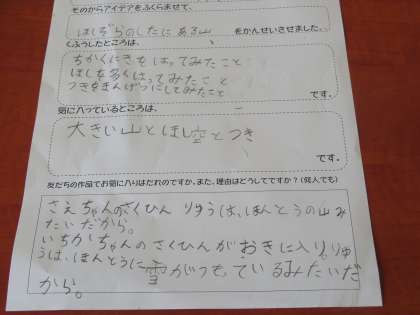 そのからアイデアをふくらませて、
ほしぞらのしたにある山
をかんせいさせました。
くふうしたところは、
ちかくにきをはってみたこと
ほしを多くはってみたこと
つきをまんげつにしてみたこと
です。
気に入っているところは、
大きい山とほし空とつき
です。
友だちの作品でお気に入りはだれのですか。また、理由はどうしてですか？(何人でも)
さえちゃんのさくひん りゆうは、ほんとうの山み
たいだから。
いちかちゃんのさくひんがおきに入り。りゆ
うは、ほんとうに雪がつもっているみたいだ
から。